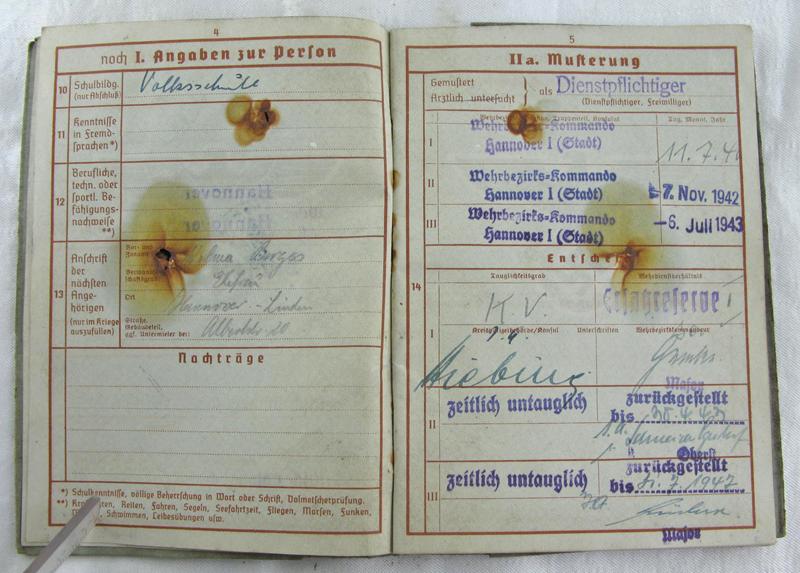 4
noch I. Angaben zur Person
10 Schulbildg. (nur Abschluß) Volksschule
11 Kenntnisse in Fremdsprachen*)
12 Berufliche, techn. oder sportl. Befähigungsnachweise **)
Hannover
Hannover
13 Anschrift der nächsten Angehörigen (nur im Kriege auszufüllen)
Vor- und Zuname
Ehefrau
Ort Hannover - Linden
Straße, Gebäudeteil, ggf. Untermieter bei:
Nachträge
*) Schulkenntnisse, völlige Beherrschung in Wort oder Schrift, Dolmetscherprüfung.
Reiten, Fahren, Segeln, Seefahrtzeit, Fliegen, Morsen, Funken,
Schwimmen, Leibesübungen usw.
5
IIa. Musterung
Gemustert
Ärztlich untersucht
als Dienstpflichtiger
(Dienstpflichtiger, Freiwilliger)
Tag, Monat, Jahr
I Wehrbezirks-Kommando
Hannover I (Stadt)
11.7.4
II Wehrbezirks-Kommando
Hannover I (Stadt)
7. Nov. 1942
III Wehrbezirks-Kommando
Hannover I (Stadt)
-6. Juli 1943
14
Tauglichkeitsgrad Wehrdienstverhältnis
I K.V. Ersatzreserve I
Unterschriften Wehrbezirkskommandeur
Major
II zeitlich untauglich zurückgestellt
bis 30.4.43
Oberst
III zeitlich untauglich zurückgestellt
bis
Major